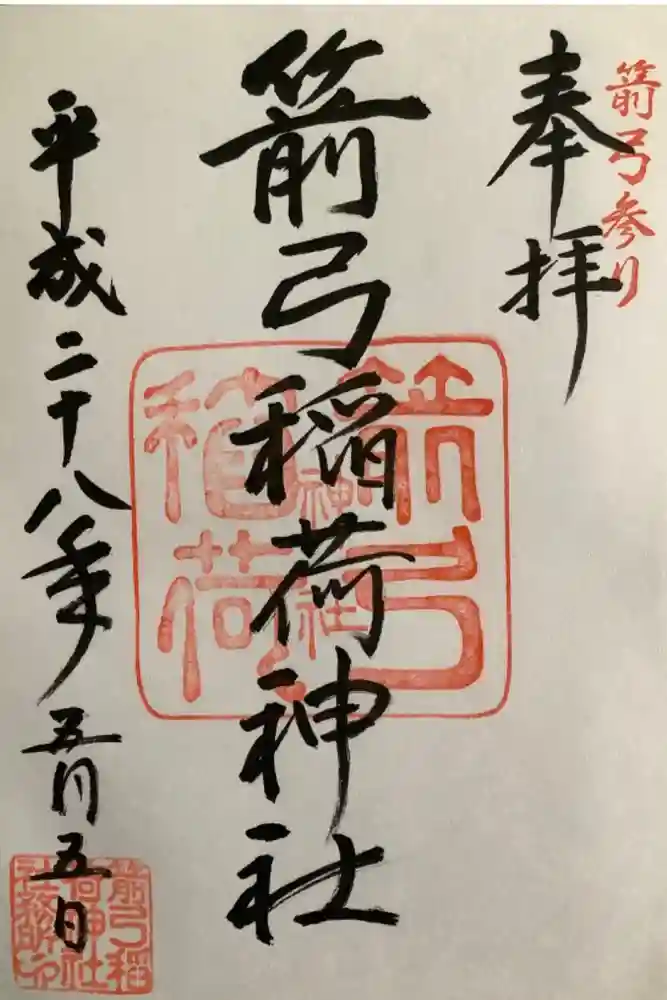 箭弓参り
奉拝
箭弓稲荷神社
箭弓
稲荷
神社
平成二十八年五月五日
箭弓稲
荷神社
社務所印